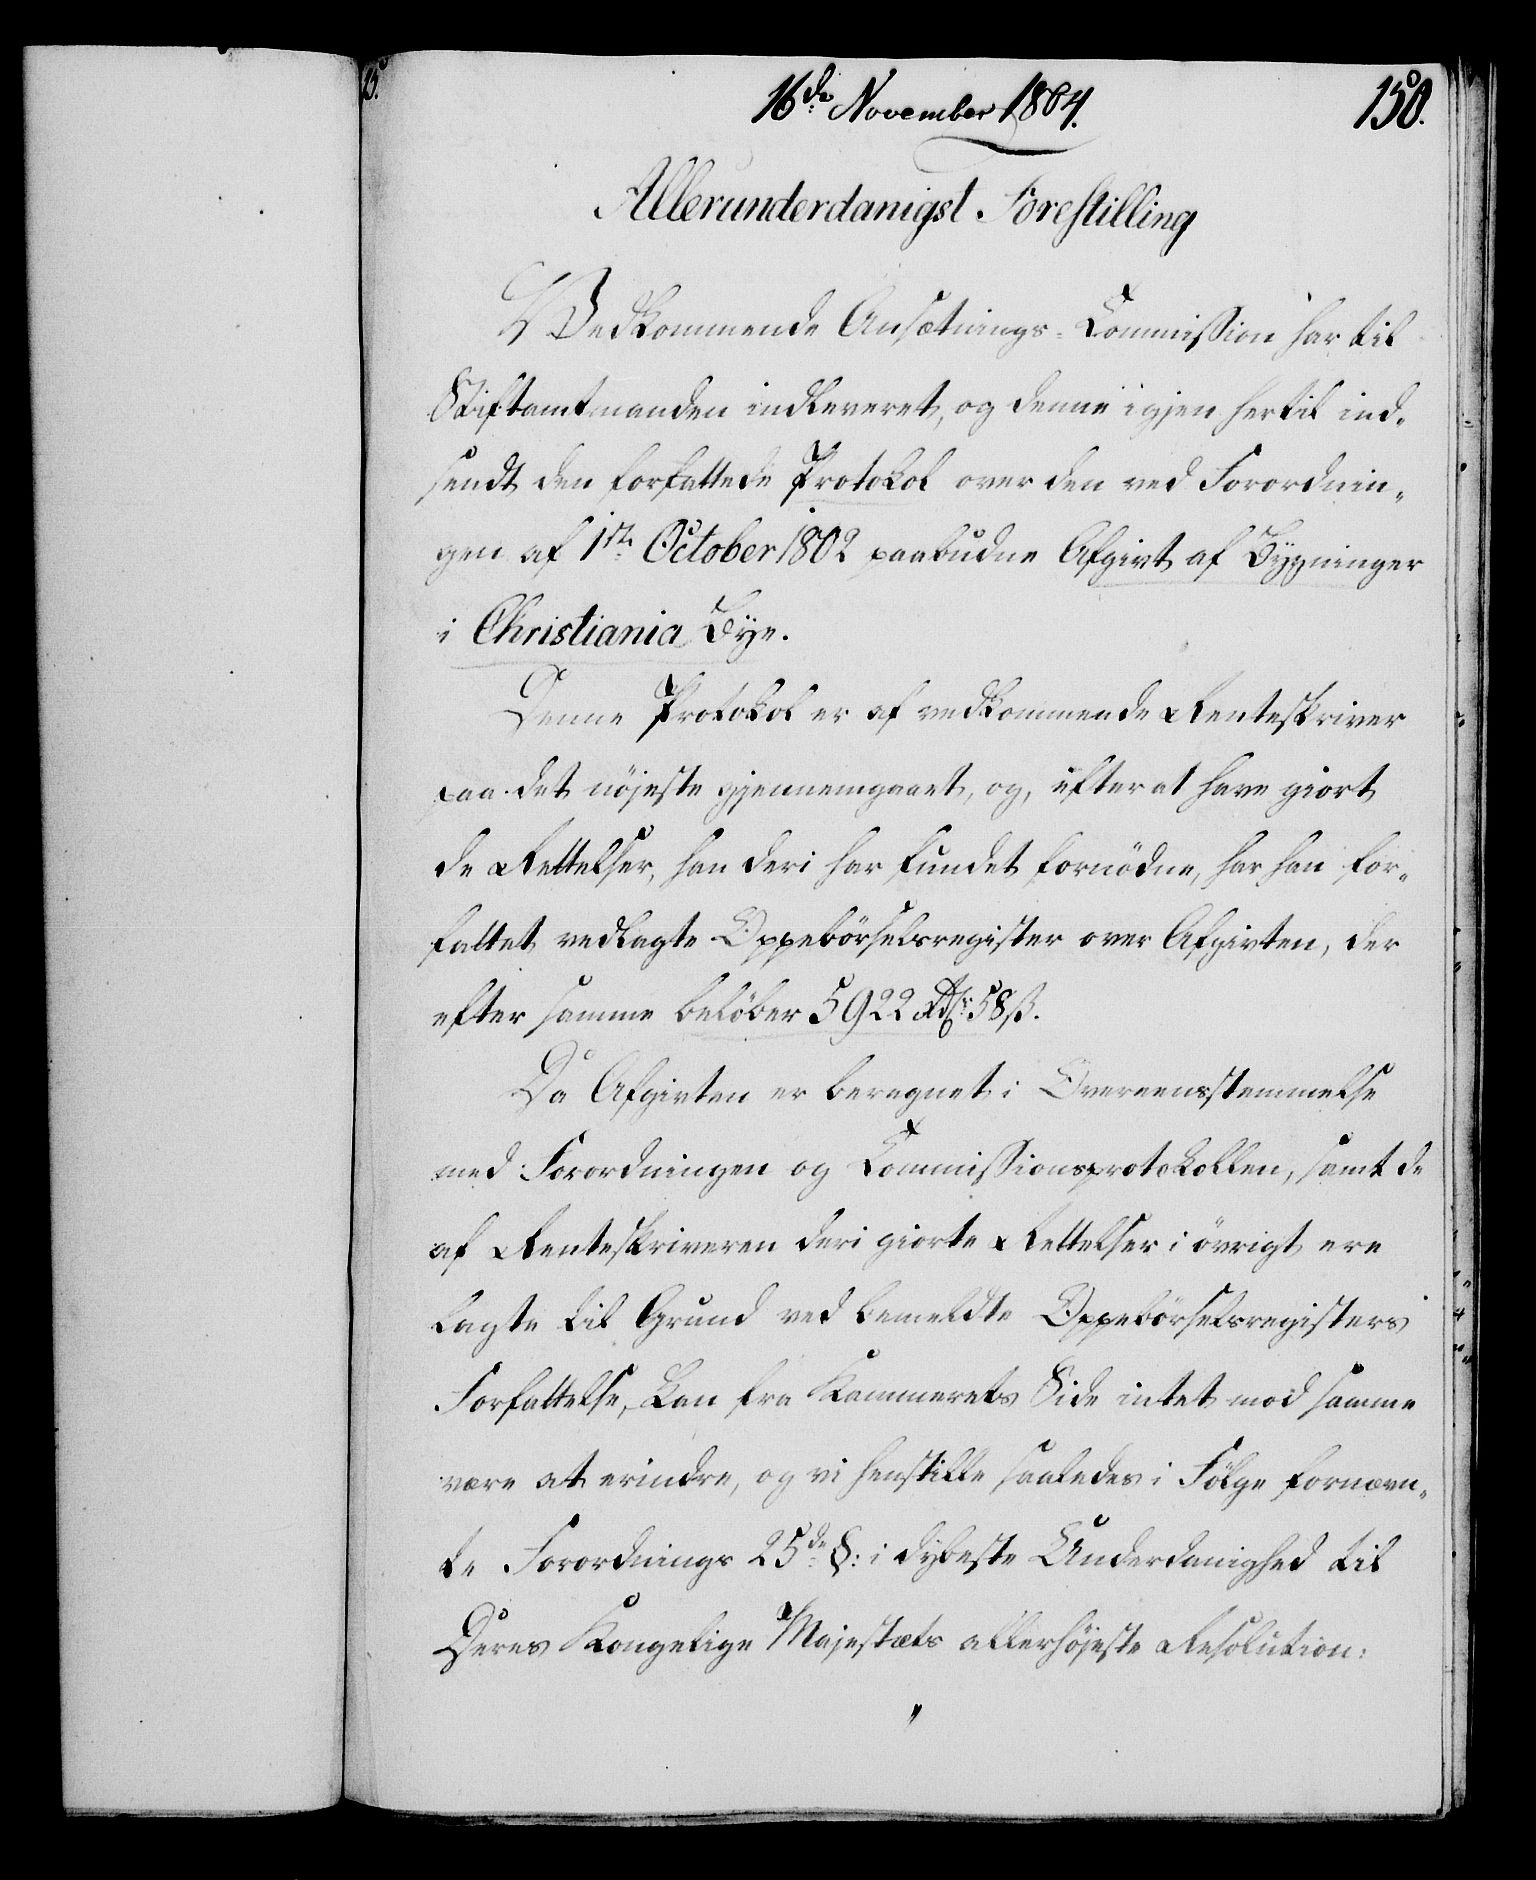 16de November 1804.
150.
Allerunderdanigst Forestilling
Vedkommende Ansætnings-Commission har til
Stiftamtmanden indleveret, og denne igjen hertil ind-
sendt den forfattede Protokol over den ved Forordnin-
gen af 1ste October 1802 paabudne Afgivt af Bygninger
i Christiania Bye.
Denne Protokol er af vedkommende Renteskriver
paa det nöjeste gjennemgaaet, og, efter at have giort
de Rettelser, han deri har fundet fornödne, har han for-
fattet vedlagte Oppebörselsregister over Afgivten, der
efter samme belöber 5922 Rdr. 58 ß.
Da Afgivten er beregnet i Overeensstemmelse
med Forordningen og Commissionsprotokollen, samt de
af Renteskriveren deri giorte Rettelser i övrigt ere
lagte til Grund ved bemeldte Oppebörselsregisters
Forfattelse, kan fra Kammerets Side intet mod samme
være at erindre, og vi henstille saaledes i Fölge fornævn-
te Forordnings 25de §: i dybeste Underdanighed til
Deres Kongelige Majestæts allerhöjeste Resolution:
"